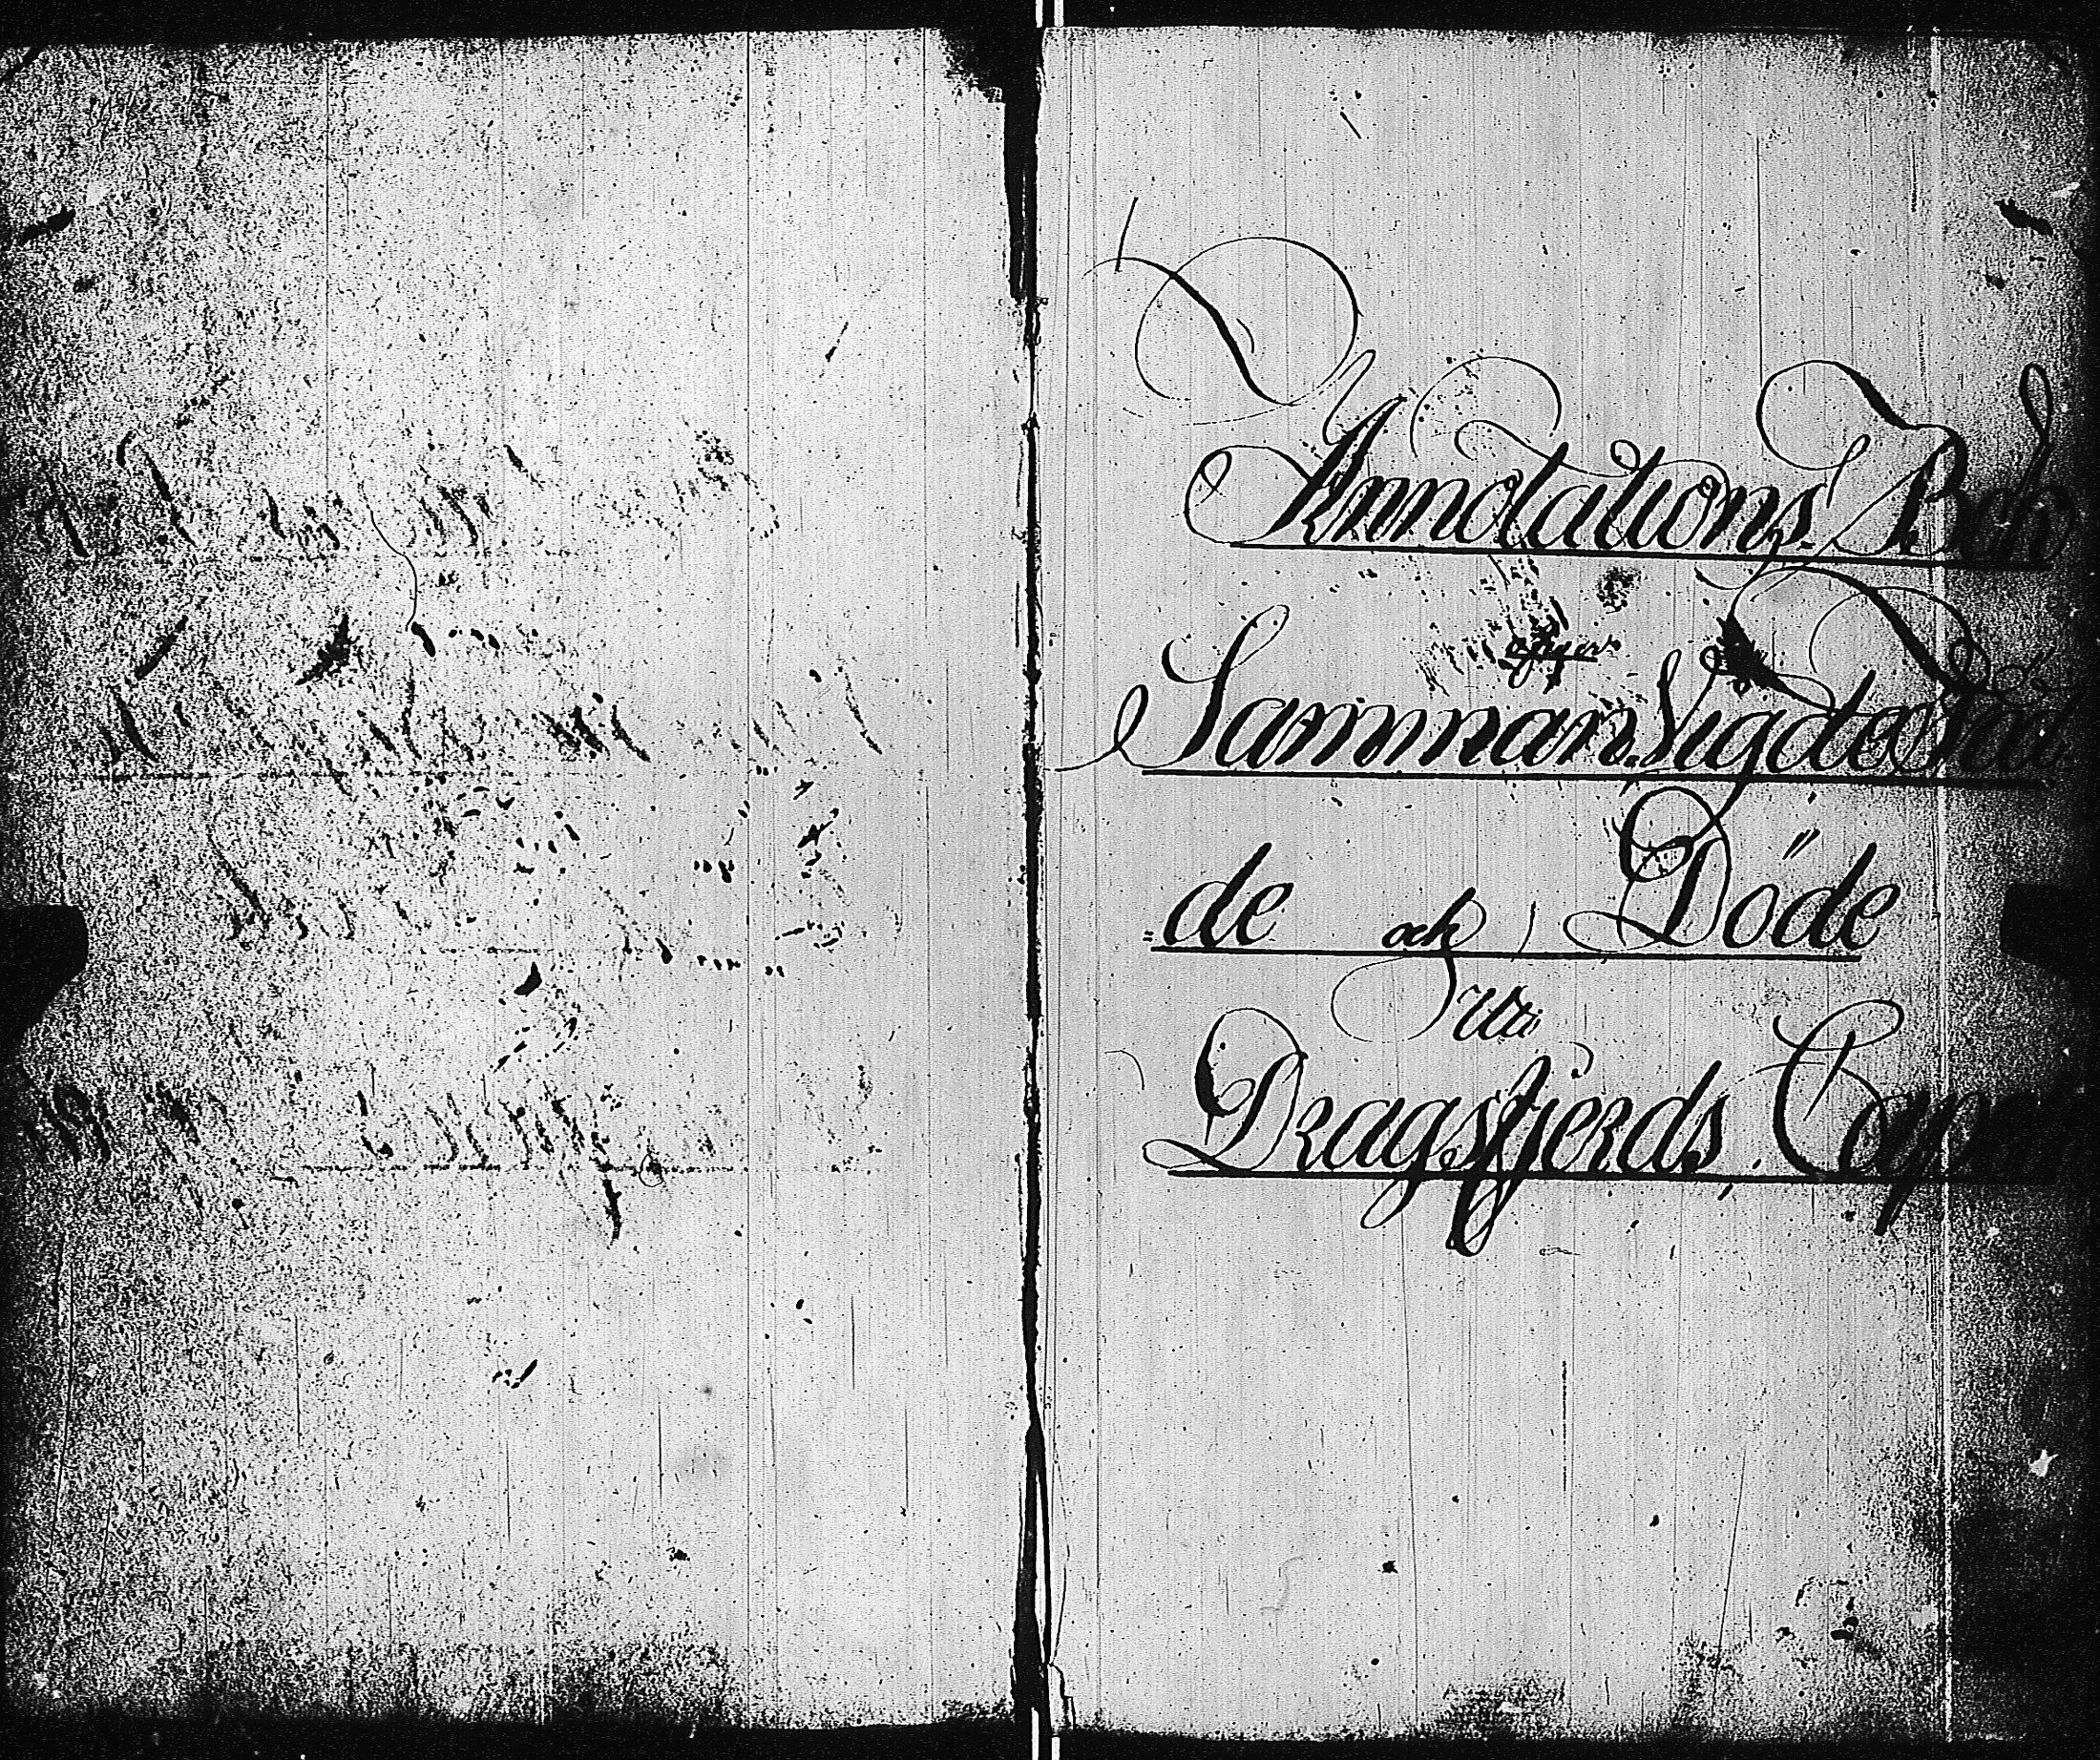 Annotations Bok
öfver
Samman Vigde Föd
de och Döde
uti
Dragsfjerds Capell